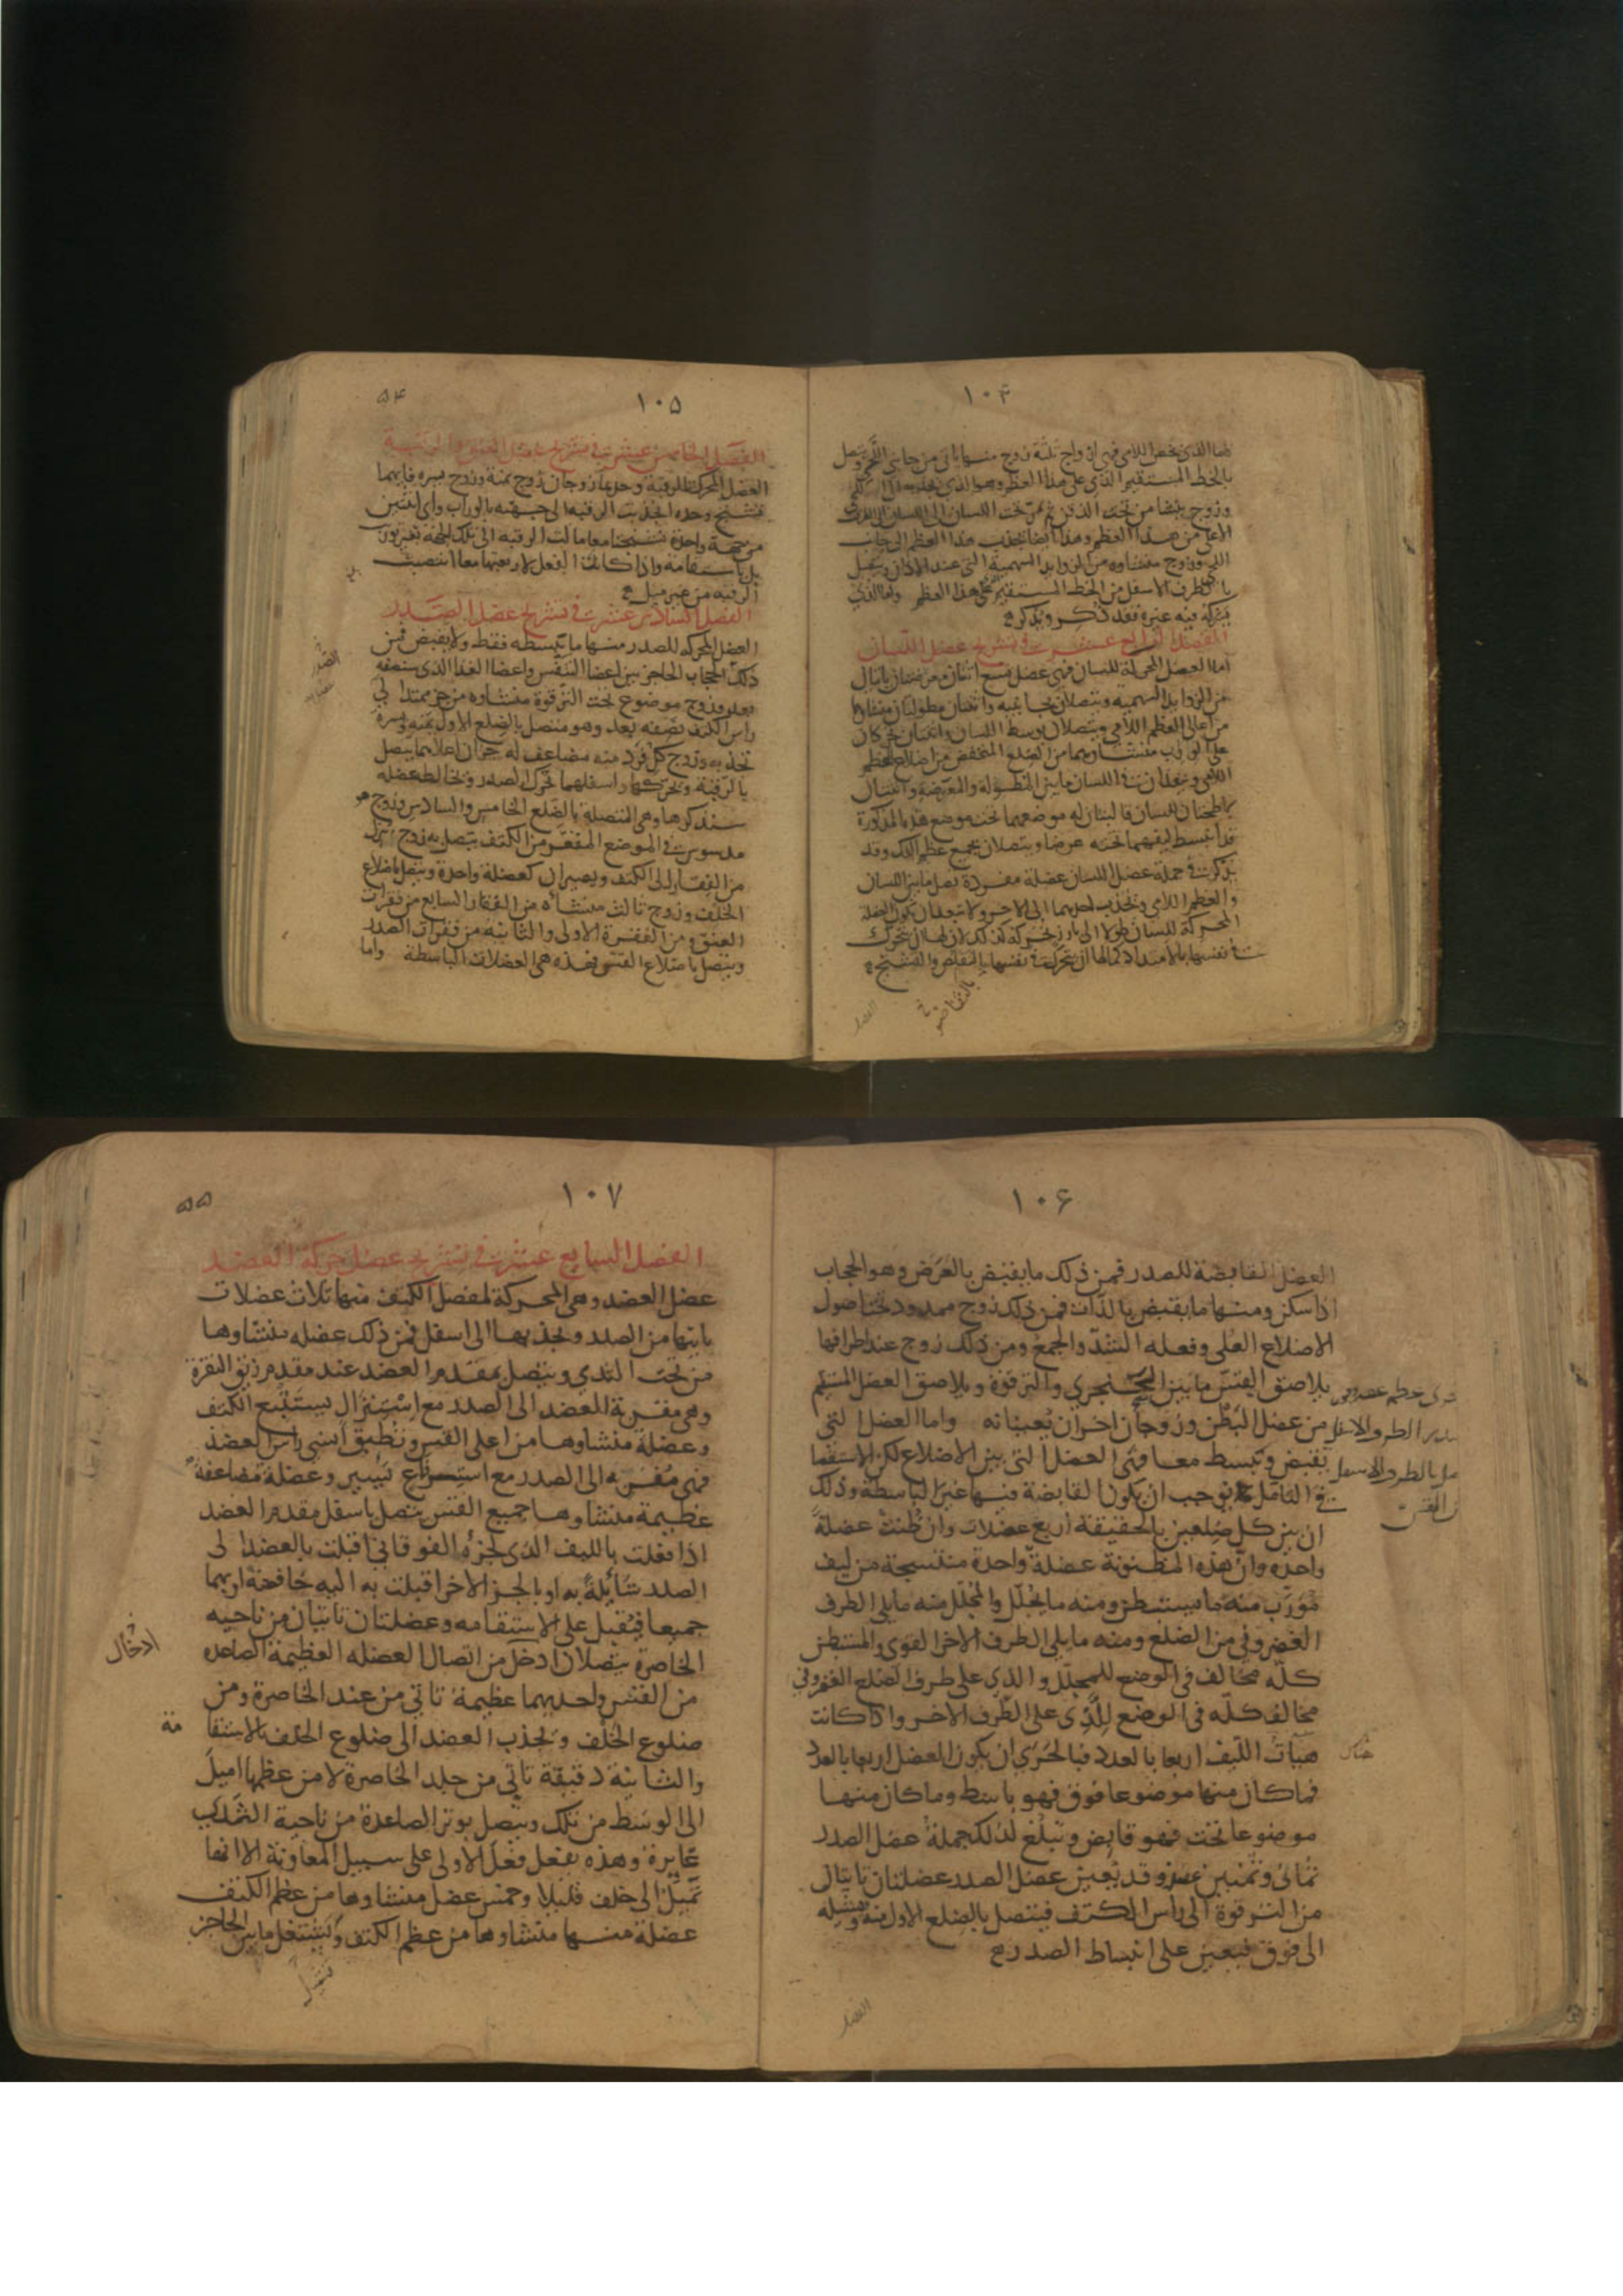 ١٠٤
اما الذى يخص اللامى فهى ازواج ثلثة زوج منها ياتى من جانبى اللحى ويتصل
بالخط المستقيم الذى على هذا العظم وهو الذى يجذبه الى اللحى
وزوج ينشا من تحت الذقن ثم يمر تحت اللسان الى الطرف
الاعلى من هذا العظم وهذا ايضا يجذب هذا العظم الى جانب
اللحى وزوج منشاوه من الزوايد السهمية التى عند الاذان ويتصل
بالطرف الاسفل من الخط المستقيم على هذا العظم واما الذى
يشركه فيه غيره فقد ذكر ويذكر
الفصل الرابع عشر فى تشريح عضل اللسان
اما العضل المحركة للسان فهى عضل تسع اثنان معرضتان ياتيان
من الزوايد السهمية ويتصلان بجانبيه واثنتان مطولتان منشاهما
من اعالى العظم اللامى ويتصلان بوسط اللسان واثنتان تحركان
على الوراب منشاوهما من الضلع المنخفض من اضلاع العظم
اللامى وينفذان فى اللسان ما بين المطولة والمعرضة واثنتان
باطحتان للسان قالبتان له موضعهما تحت موضع هذه المذكورة
قد انبسط ليفهما تحته عرضا ويتصلان بجميع عظم الفك وقد
يذكر فى جملة عضل اللسان عضلة مفردة تصل ما بين اللسان
والعظم اللامى وتجذب احدهما الى الاخر ولا تبعد ان يكون العضلة
المحركة للسان طولا الى بارز تحركه كذلك لان لها ان تتحرك
فى نفسها بالامتداد كما لها ان تتحرك فى نفسها بالتقلص والتشنج
بالتقاصر
العضل
١٠٥
٥٤
الفصل الخامس عشر فى تشريح عضل العنق والرقبة
العضل المحركة للرقبة وحدها زوجان زوج يمنة وزوج يسره فايهما
تشنج وحده انجذبت الرقبة الى جهته بالوراب واى اثنين
من جهة واحدة تشنجتا معا مالت الرقبة الى تلك الجهة بغير توريب
بل باستقامة واذا كان الفعل لاربعتها معا انتصبت
الرقبه من غير ميل
الفصل السادس عشر فى تشريح عضل الصدر
العضل المحركه للصدر منها ما يبسطه فقط ولا يقبض فمن
ذلك الحجاب الحاجز بين اعضا التنفس واعضا الغذا الذى سنصفه
بعد وزوج موضوع تحت الترقوة منشاوه من جز ممتد الى
راس الكتف نصفه بعد وهو متصل بالضلع الاول يمنه ويسرة
تجذبه وزوج كل فرد منه مضاعف له جزان اعلاهما يتصل
بالرقبة وتحركها واسفلهما تحرك الصدر وتخالطه عضله
سنذكرها وهى المتصلة بالضلع الخامس والسادس وزوج هو
مدسوس فى الموضع المقعر من الكتف يتصل به زوج ينزل
من الفقار الى الكتف ويصيران كعضلة واحدة ويتصل باضلاع
الخلف وزوج ثالث منشاه من الفقار السابع من فقرات
العنق ومن الفقرة الاولى والثانيه من فقرات الصدر
ويتصل باضلاع القس فهذه هى العضلات الباسطة واما
١٠٦
العضل القابضة للصدر فمن ذلك ما يقبض بالعرض وهو الحجاب
اذا سكن ومنها ما يقبض بالذات فمن ذلك زوج ممدود تحت اصول
الاضلاع العلى وفعله الشد والجمع ومن ذلك زوج عند اطرافها
يلاصق القس ما بين الخنجرى والترقوة ويلاصق العضل المستقيم
من عضل البطن وزوجان اخران يعينانه واما العضل التى
يقبض وتبسط معا فهى العضل التى بين الاضلاع لكن الاستقصا
فى التامل يوجب ان يكون القابضة منها غير الباسطة وذلك
ان بين كل ضلعين بالحقيقة اربع عضلات وان ظنت عضلة
واحده وان هذه المظنونة عضلة واحدة منتسجة من ليف
مورب منه ما يستبطن ومنه ما يجلل والمجلل منه ما يلى الطرف
الغضروفى من الضلع ومنه ما يلى الطرف الاخر القوى والمستبطن
كله مخالف فى الوضع للمجلل والذى على طرف الضلع الغضروفى
مخالف كله فى الوضع للذى على الطرف الاخر واذا كانت
هيات الليف اربعا بالعدد فبالحرى ان يكون العضل اربعا بالعدد
فما كان منها موضوعا فوق فهو باسط وما كان منها
موضوعا تحت فهو قابض وتبلغ لذلك جملة عضل الصدر
ثمانى وثمنين وقد يعين عضل الصدر عضلتان تاتيان
من الترقوة الى راس الكتف فيتصل بالضلع الاول منه وتشيله
الى فوق فيعين على انبساط الصدر
العضل
١٠٧
٥٥
الفصل السابع عشر فى تشريح عضل حركة العضد
عضل العضد وهى المحركة لمفصل الكتف منها ثلاث عضلات
ياتيها من الصدر وتجذبها الى اسفل فمن ذلك عضله منشاوها
من تحت الثدى ويتصل بمقدم العضد عند مقدم زيق النقرة
وهى مقربة للعضد الى الصدر مع استنزال يستتبع الكتف
وعضلة منشاوها من اعلى القس وتطيق انسى راس العضد
فهى مقربه الى الصدر مع استرفاع يسير وعضلة مضاعفة
عظيمة منشاوها جميع القس يتصل باسفل مقدم العضد
اذا فعلت بالليف الذى لجزه الفوقانى اقبلت بالعضد الى
الصدر شايلة به او بالجز الاخر اقبلت به اليه خافضة او بهما
جميعا فتقبل على الاستقامه وعضلتان تاتيان من ناحيه
الخاصرة يتصلان ادخل من اتصال العضله العظيمة الصاعده
من القس واحديهما عظيمة تاتى من عند الخاصرة ومن
ضلوع الخلف وتجذب العضد الى ضلوع الخلف بالاستقا
مة
والثانية دقيقة تاتى من جلد الخاصرة لا من عظمها اميل
الى الوسط من تلك ويتصل بوتر الصاعدة من ناحية الثدى
غايرة وهذه يفعل فعل الاولى على سبيل المعاونة الا انها
تميل الى خلف قليلا وخمس عضل منشاوها من عظم الكتف
عضلة منها منشاوها من عظم الكتف ويشتغل ما بين الحاجز
ادخال
تشغل